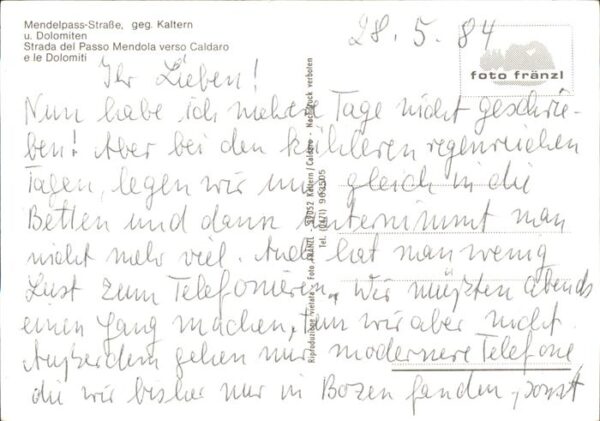 Mendelpass-Straße, geg. Kaltern
u. Dolomiten
Strada del Passo Mendola verso Caldaro
e le Dolomiti
28.5.84
foto fränzl
Ihr Lieben!
Nun habe ich mehrere Tage nicht geschrie-
ben! Aber bei den kühleren regenreichen
Tagen, legen wir uns gleich in die
Betten und dann unternimmt man
nicht mehr viel. Auch hat man wenig
Lust zum Telefonieren. Wir müßten abends
einen Gang machen, tun wir aber nicht.
Außerdem gehen nur modernere Telefone,
die wir bisher nur in Bozen fanden, sonst
Riproduzione vietata - Foto FRÄNZL - 39052 Kaltern/Caldaro - Nachdruck verboten
Tel. (0471) 963505